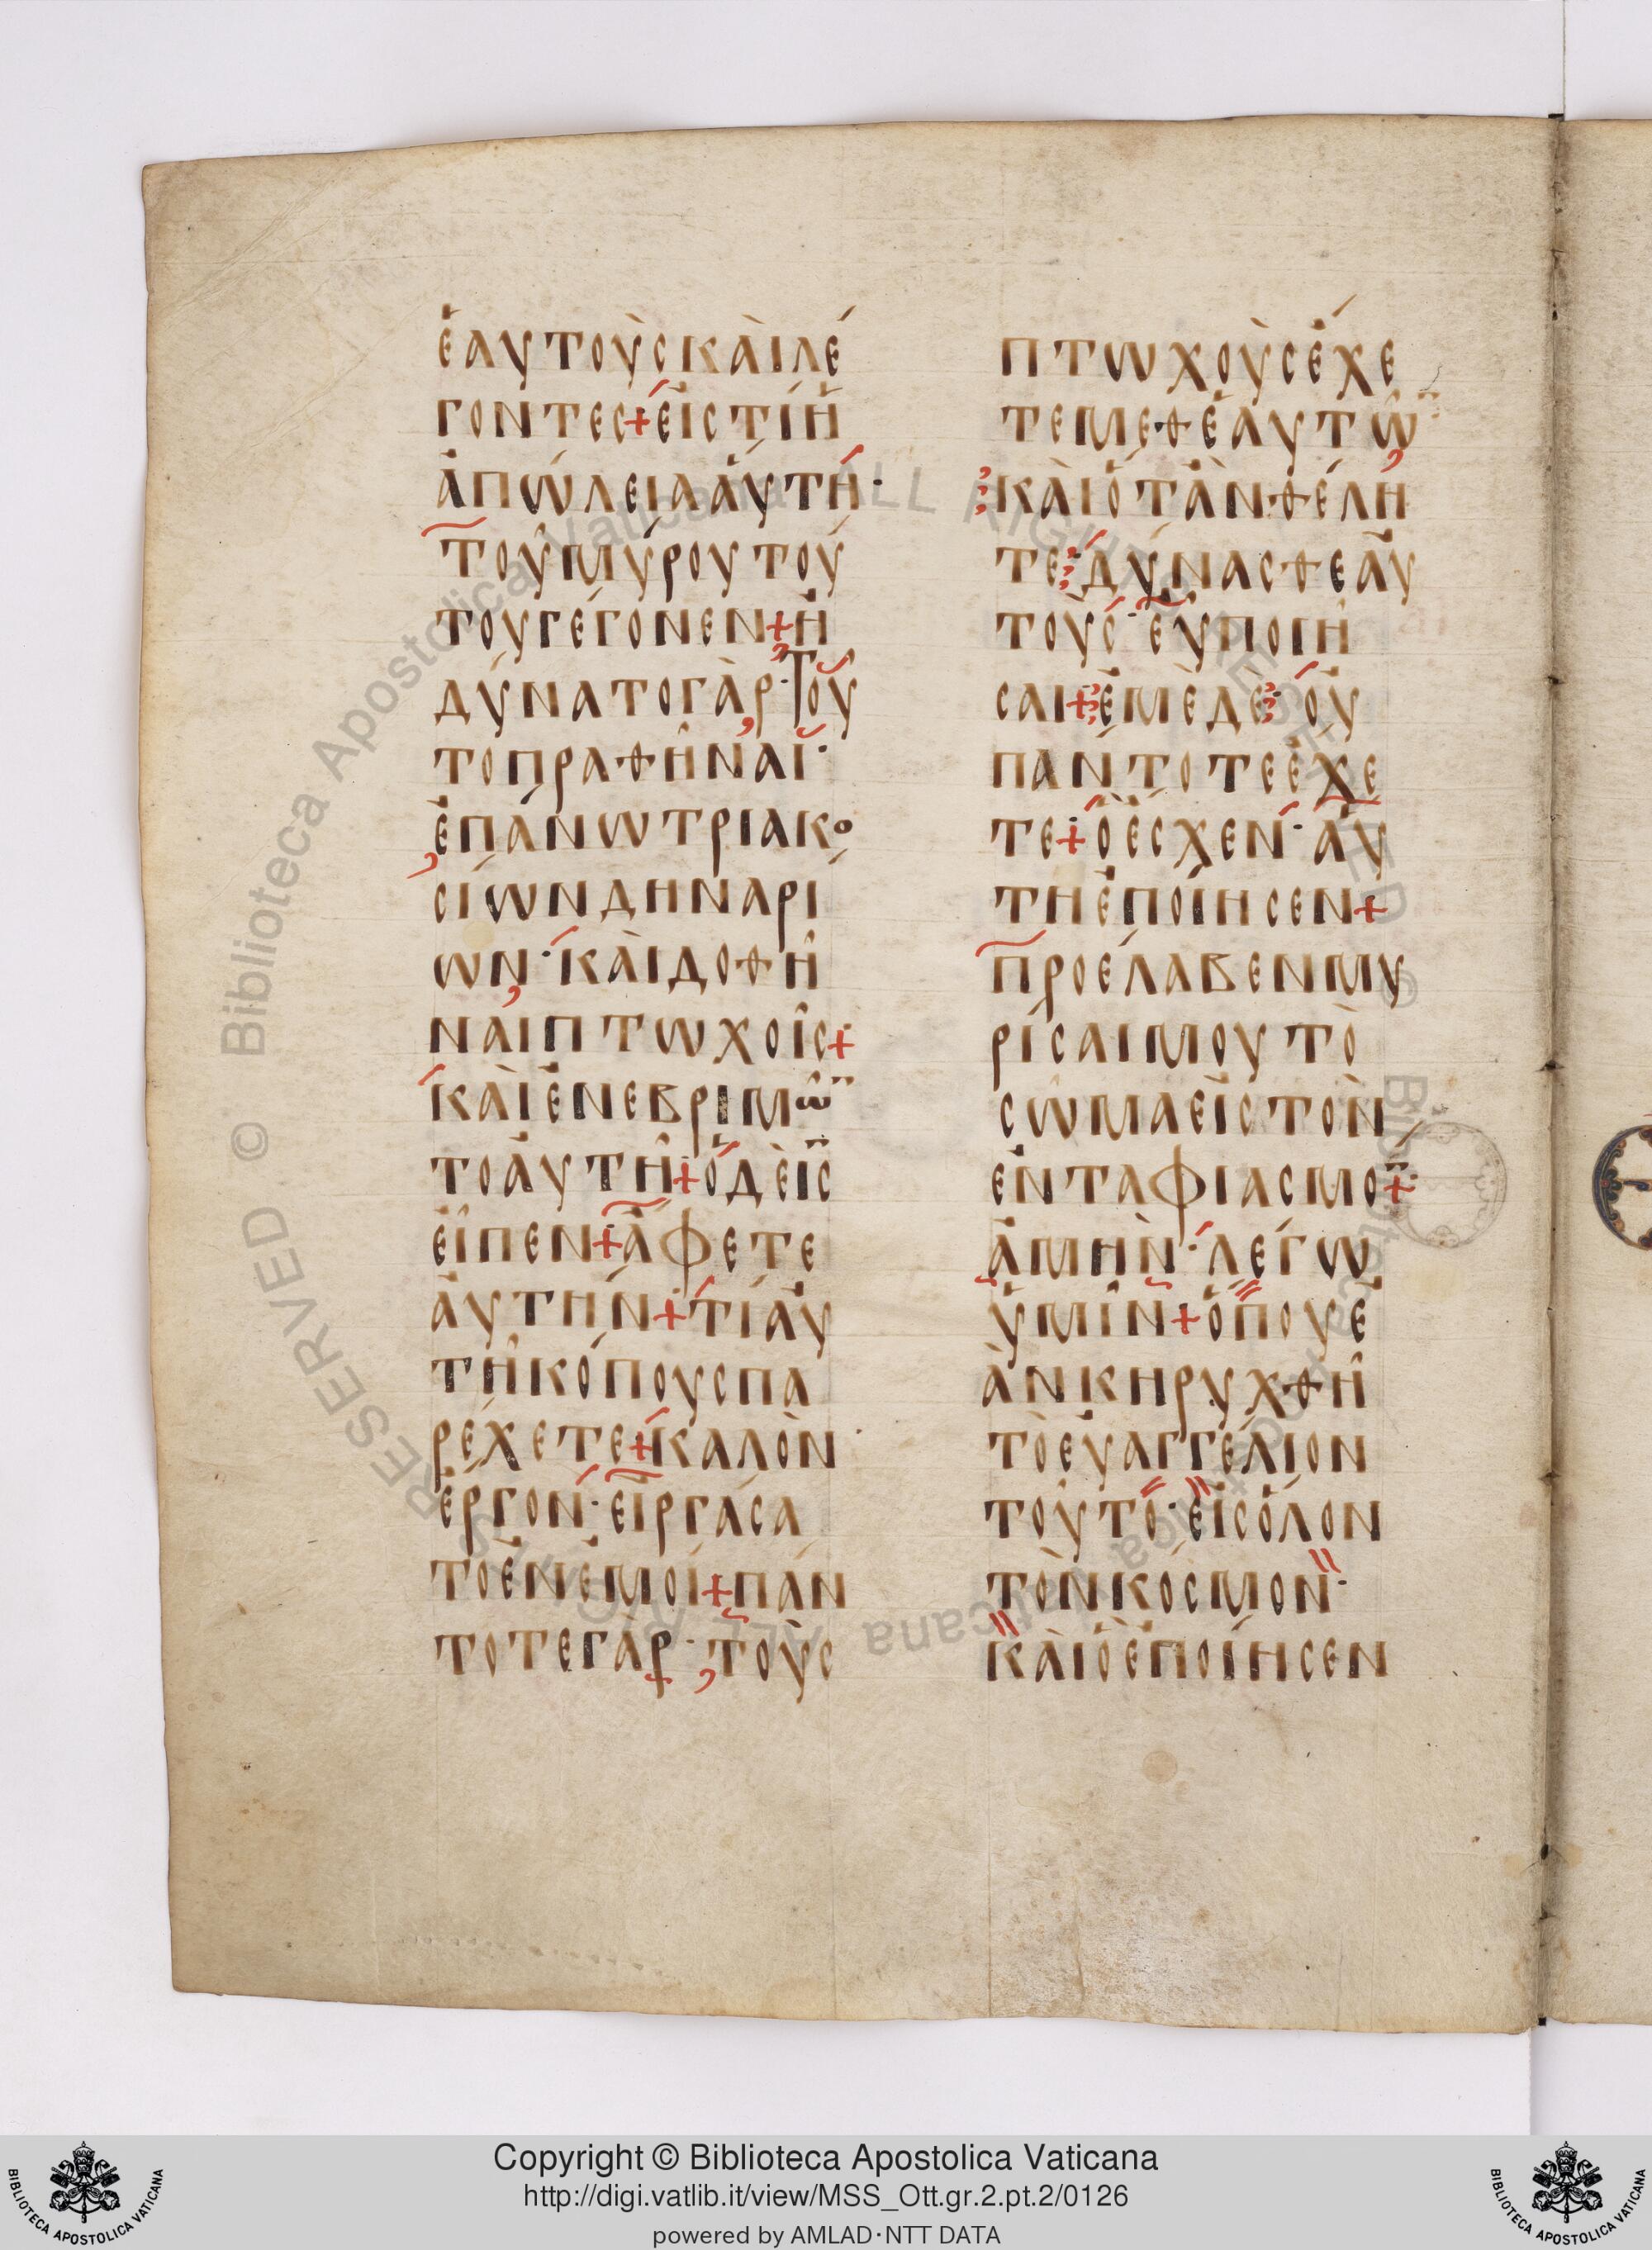 ἑαυτοὺς καὶ λέ
γοντες + εἰς τί ἡ
ἀπώλεια αὕτη ·
τοῦ μύρου τού
του γέγονεν + ἠ
δύνατο γὰρ · τοῦ
το πραθῆναι ·
ἐπάνω τριακο
σίων δηναρί
ων · καὶ δοθῆ
ναι πτωχοῖς +
καὶ ἐνεβριμῶν
το αὐτῆ + ὁ δὲ ις
εἶπεν + ἄφετε
αὐτήν + τί αὐ
τῆ κόπους πα
ρέχετε + καλὸν
ἔργον · εἰργάσα
το ἐν ἐμοί + πάν
τοτε γὰρ · τοὺς
πτωχοὺς ἔχε
τε μεθ ἑαυτῶν
καὶ ὅταν θέλη
τε · δύνασθε αὐ
τοὺς · εὖ ποιῆ
σαι + ἐμὲ δὲ · οὐ
πάντοτε ἔχε
τε + ὃ ἔσχεν · αὕ
τη ἐποίησεν +
προέλαβεν μυ
ρίσαι μου τὸ
σῶμα εἰς τὸν
ἐνταφιασμον +
ἀμὴν · λέγω
ὑμῖν + ὅπου ἐ
ὰν κηρυχθῆ
τὸ εὐαγγέλιον
τοῦτο · εἰς ὅλον
τὸν κόσμον ·
καὶ ὃ ἐποίησεν
Copyright © Biblioteca Apostolica Vaticana
http://digi.vatlib.it/view/MSS_Ott.gr.2.pt.2/0126
powered by AMLAD·NTT DATA
BIBLIOTECA APOSTOLICA VATICANA
BIBLIOTECA APOSTOLICA VATICANA